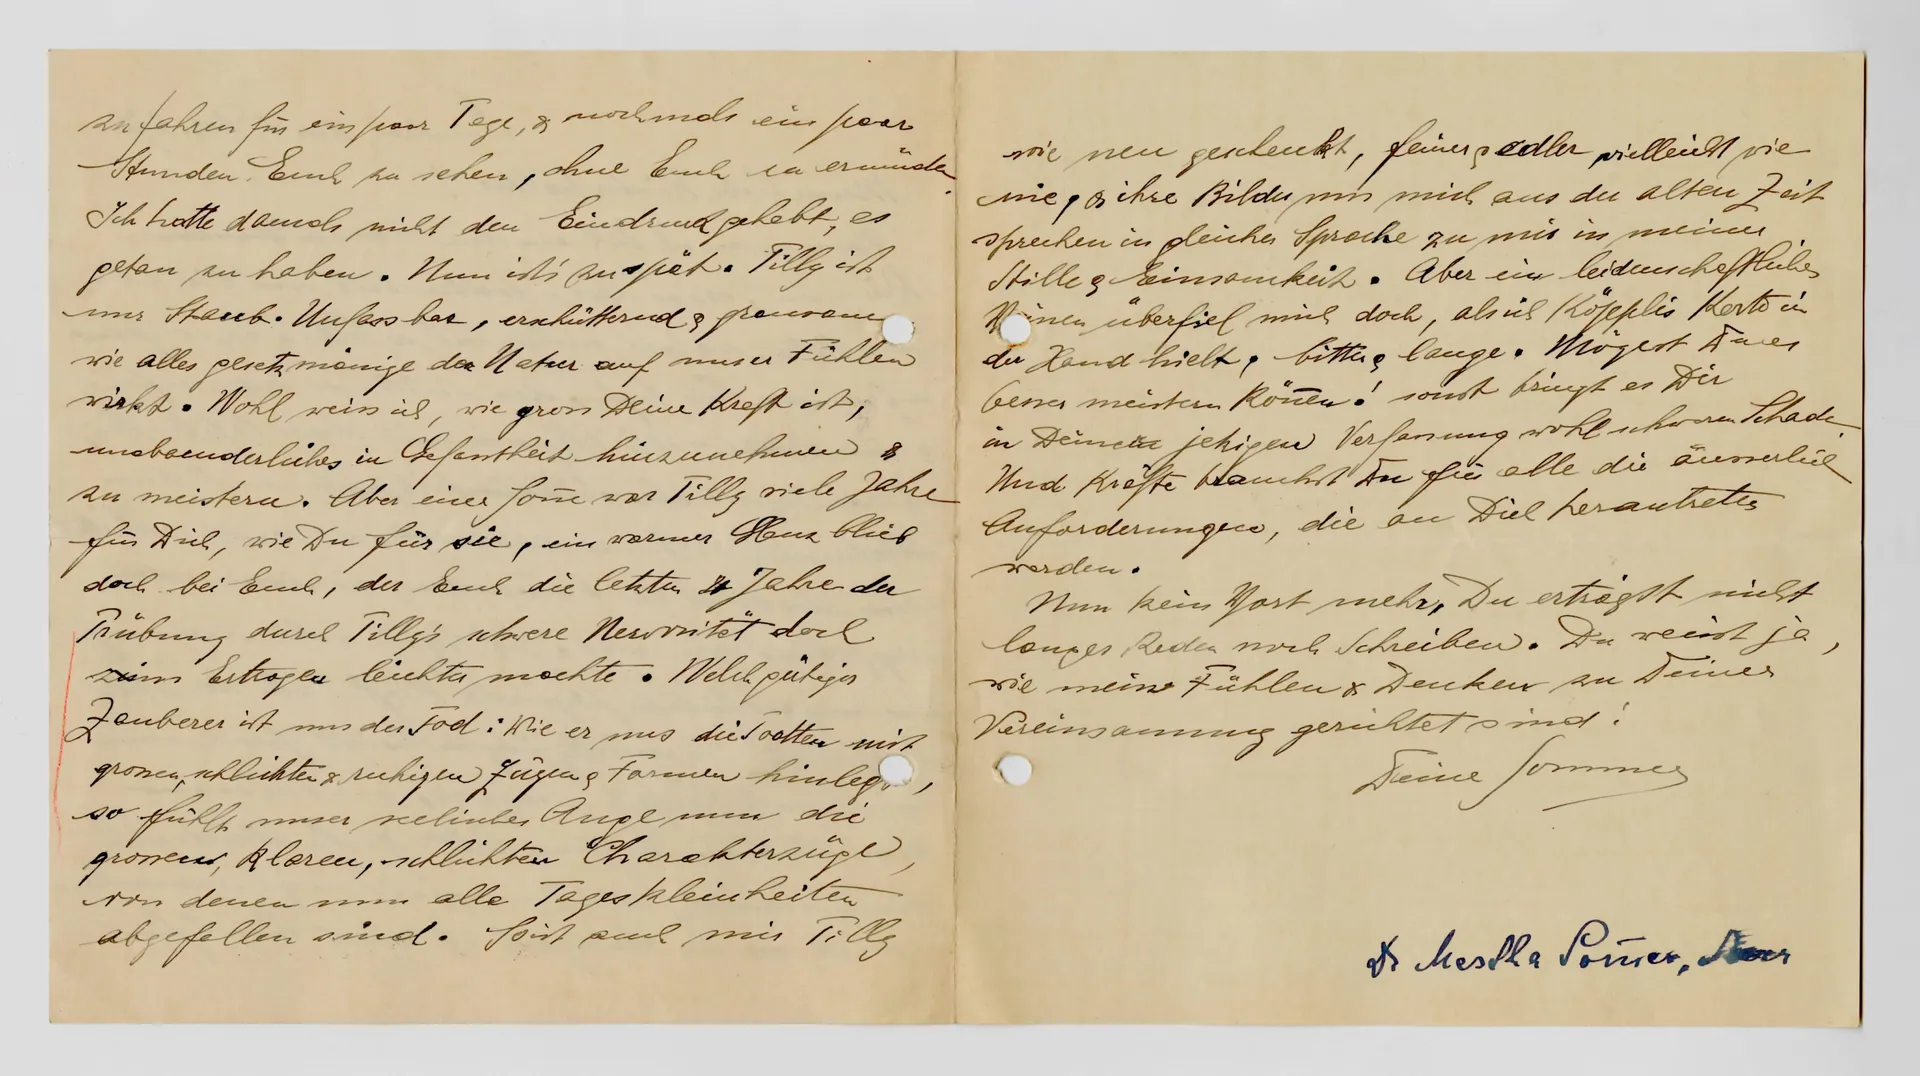 zu fahren für ein paar Tage, & nochmals ein paar
Stunden Euch zu sehen, ohne Euch zu ermüden.
Ich hatte damals nicht den Eindruck gehabt, es
getan zu haben. Nun ist's zu spät. Tilly ist
nur Staub. Unfassbar, erschütternd & grausam
wie alles gesetzmässige der Natur auf unser Fühlen
wirkt. Wohl weiss ich, wie gross Deine Kraft ist,
unabaenderliches in Gefasstheit hinzunehmen &
zu meistern. Aber eine Sonne war Tilly viele Jahre
für Dich, wie Du für sie, ein warmer Glanz blieb
doch bei Euch, der Euch die letzten Jahre der
Trübung durch Tilly's schwere Nervosität doch
zum Ertragen leichter machte. Welch gütiger
Zauberer ist uns der Tod: Wie er uns die Toten mit
grossen, schlichten & ruhigen Zügen & Formen hinlegt,
so fühlt unser seelisches Auge nun die
grossen, klaren, schlichten Charakterzüge,
von denen nun alle Tageskleinheiten
abgefallen sind. So ist auch mir Tilly
wie neu geschenkt, feiner & edler vielleicht wie
nie, & ihre Bilder um mich aus der alten Zeit
sprechen in gleicher Sprache zu mir in meiner
Stille & Einsamkeit. Aber ein leidenschaftliches
Weinen überfiel mich doch, als ich Köpplis Karte in
der Hand hielt, bitter & lange. Mögest Du es
besser meistern können! sonst bringt es Dir
in Deiner jetzigen Verfassung wohl schweren Schaden
Und Kräfte brauchst Du für alle die äusserlich
Anforderungen, die an Dich herantreten
werden.
Nun kein Wort mehr, Du erträgst nicht
langes Reden noch Schreiben. Du weisst ja,
wie meine Fühlen & Denken zu Deiner
Vereinsamung gerichtet sind!
Deine Sommer
Dr Martha Somer,